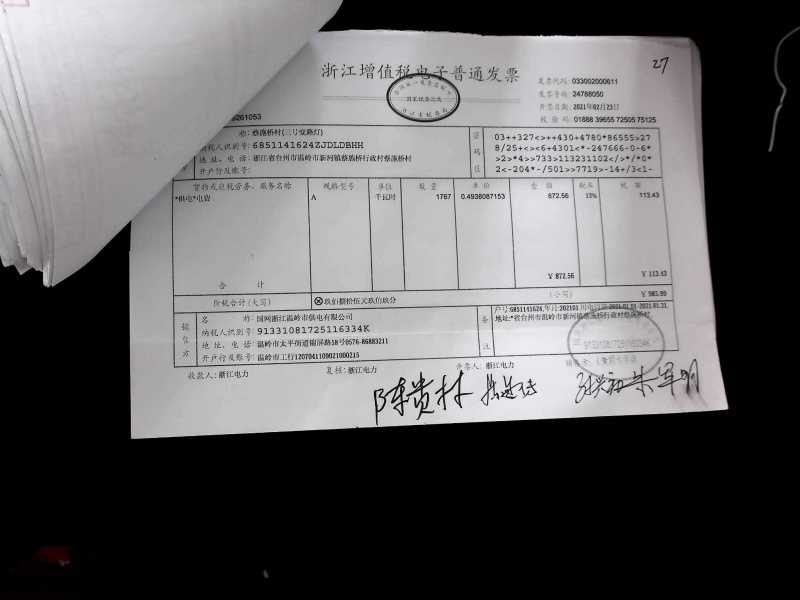 27
浙江增值税电子普通发票
发票代码: 033002000611
发票号码: 24788050
开票日期: 2021年02月23日
校 验 码: 01888 39655 72505 75125
9261053
称: 蔡施桥村(三号党路灯)
纳税人识别号: 6851141624ZJDLDBHH
地 址、电 话: 浙江省台州市温岭市新河镇蔡施桥行政村蔡施桥村
开户行及账号:
密码区
03++327<>++430+4780*86555>278/25+<><6+4301<*-247666-0-6*>2>*4>>733>113231102</>*/*0*2<-204*-/501>>7719>-14+/3<1-
货物或应税劳务、服务名称 规格型号 单位 数 量 单 价 金 额 税率 税 额
*供电*电费 A 千瓦时 1767 0.4938087153 872.56 13% 113.43
合 计 ¥872.56 ¥113.43
价税合计(大写) ⊗玖佰捌拾伍元玖角玖分 (小写) ¥985.99
销售方
名 称: 国网浙江温岭市供电有限公司
纳税人识别号: 91331081725116334K
地 址、电 话: 温岭市太平街道锦屏路18号0576-86883211
开户行及账号: 温岭市工行1207041109021000215
备注
户号:6851141624,年月:202101
地址:*省台州市温岭市新河镇蔡施桥行政村蔡施桥村
91331081725116334K
收款人: 浙江电力 复核: 浙江电力 开票人: 浙江电力
陈贵林